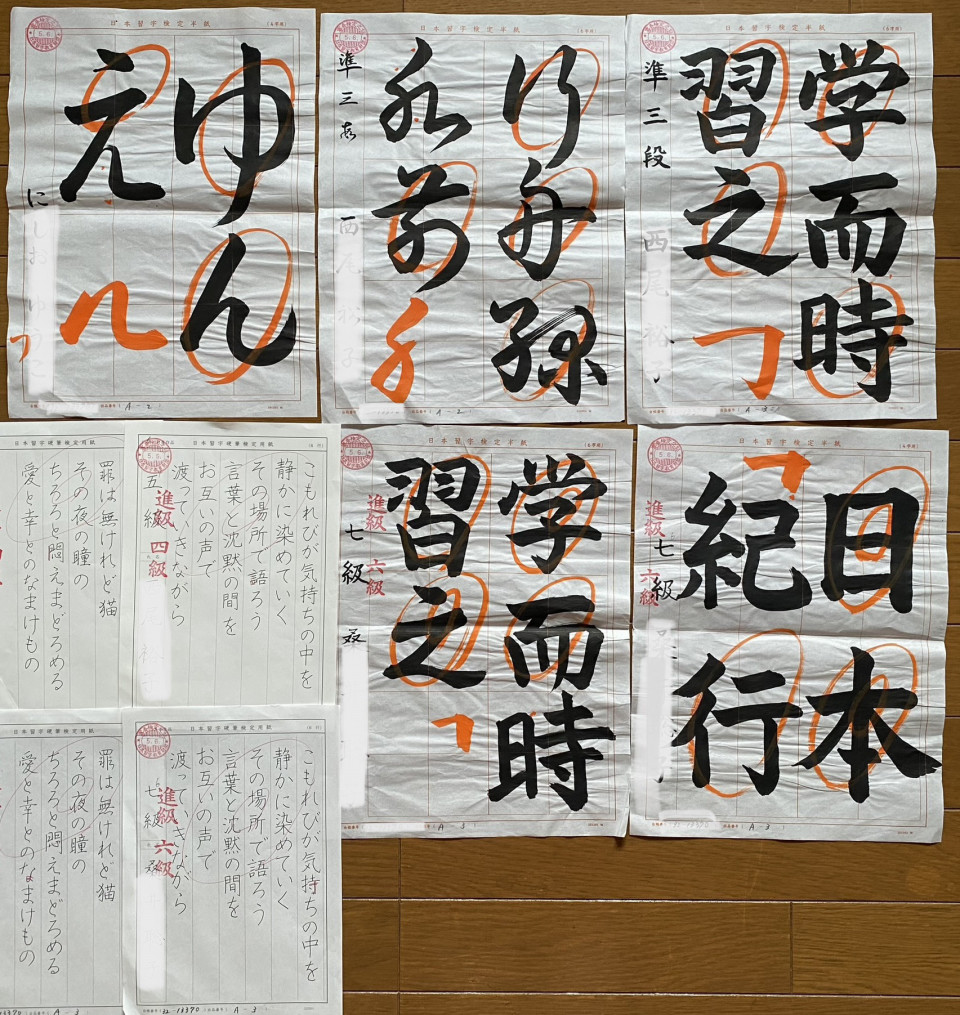 日本習字検定半紙
ゆん
え
日本習字検定半紙
永前
準三段
日本習字検定半紙
学而時
習之
準三段
西尾裕
日本習字硬筆検定用紙
罪は無けれど猫
その夜の瞳の
ちろろと悶えまどろめる
愛と幸とのなまけもの
日本習字硬筆検定用紙
こもれびが気持ちの中を
静かに染めていく
その場所で語ろう
言葉と沈黙の間を
お互いの声で
渡っていきながら
五級
進級 四級
日本習字検定半紙
学而時
習之
進級 六級
七級
A-3
日本習字検定半紙
日本
紀行
進級 六級
七級
A-3
日本習字硬筆検定用紙
罪は無けれど猫
その夜の瞳の
ちろろと悶えまどろめる
愛と幸とのなまけもの
A-3
日本習字硬筆検定用紙
こもれびが気持ちの中を
静かに染めていく
その場所で語ろう
言葉と沈黙の間を
お互いの声で
渡っていきながら
七級
進級 六級
A-3